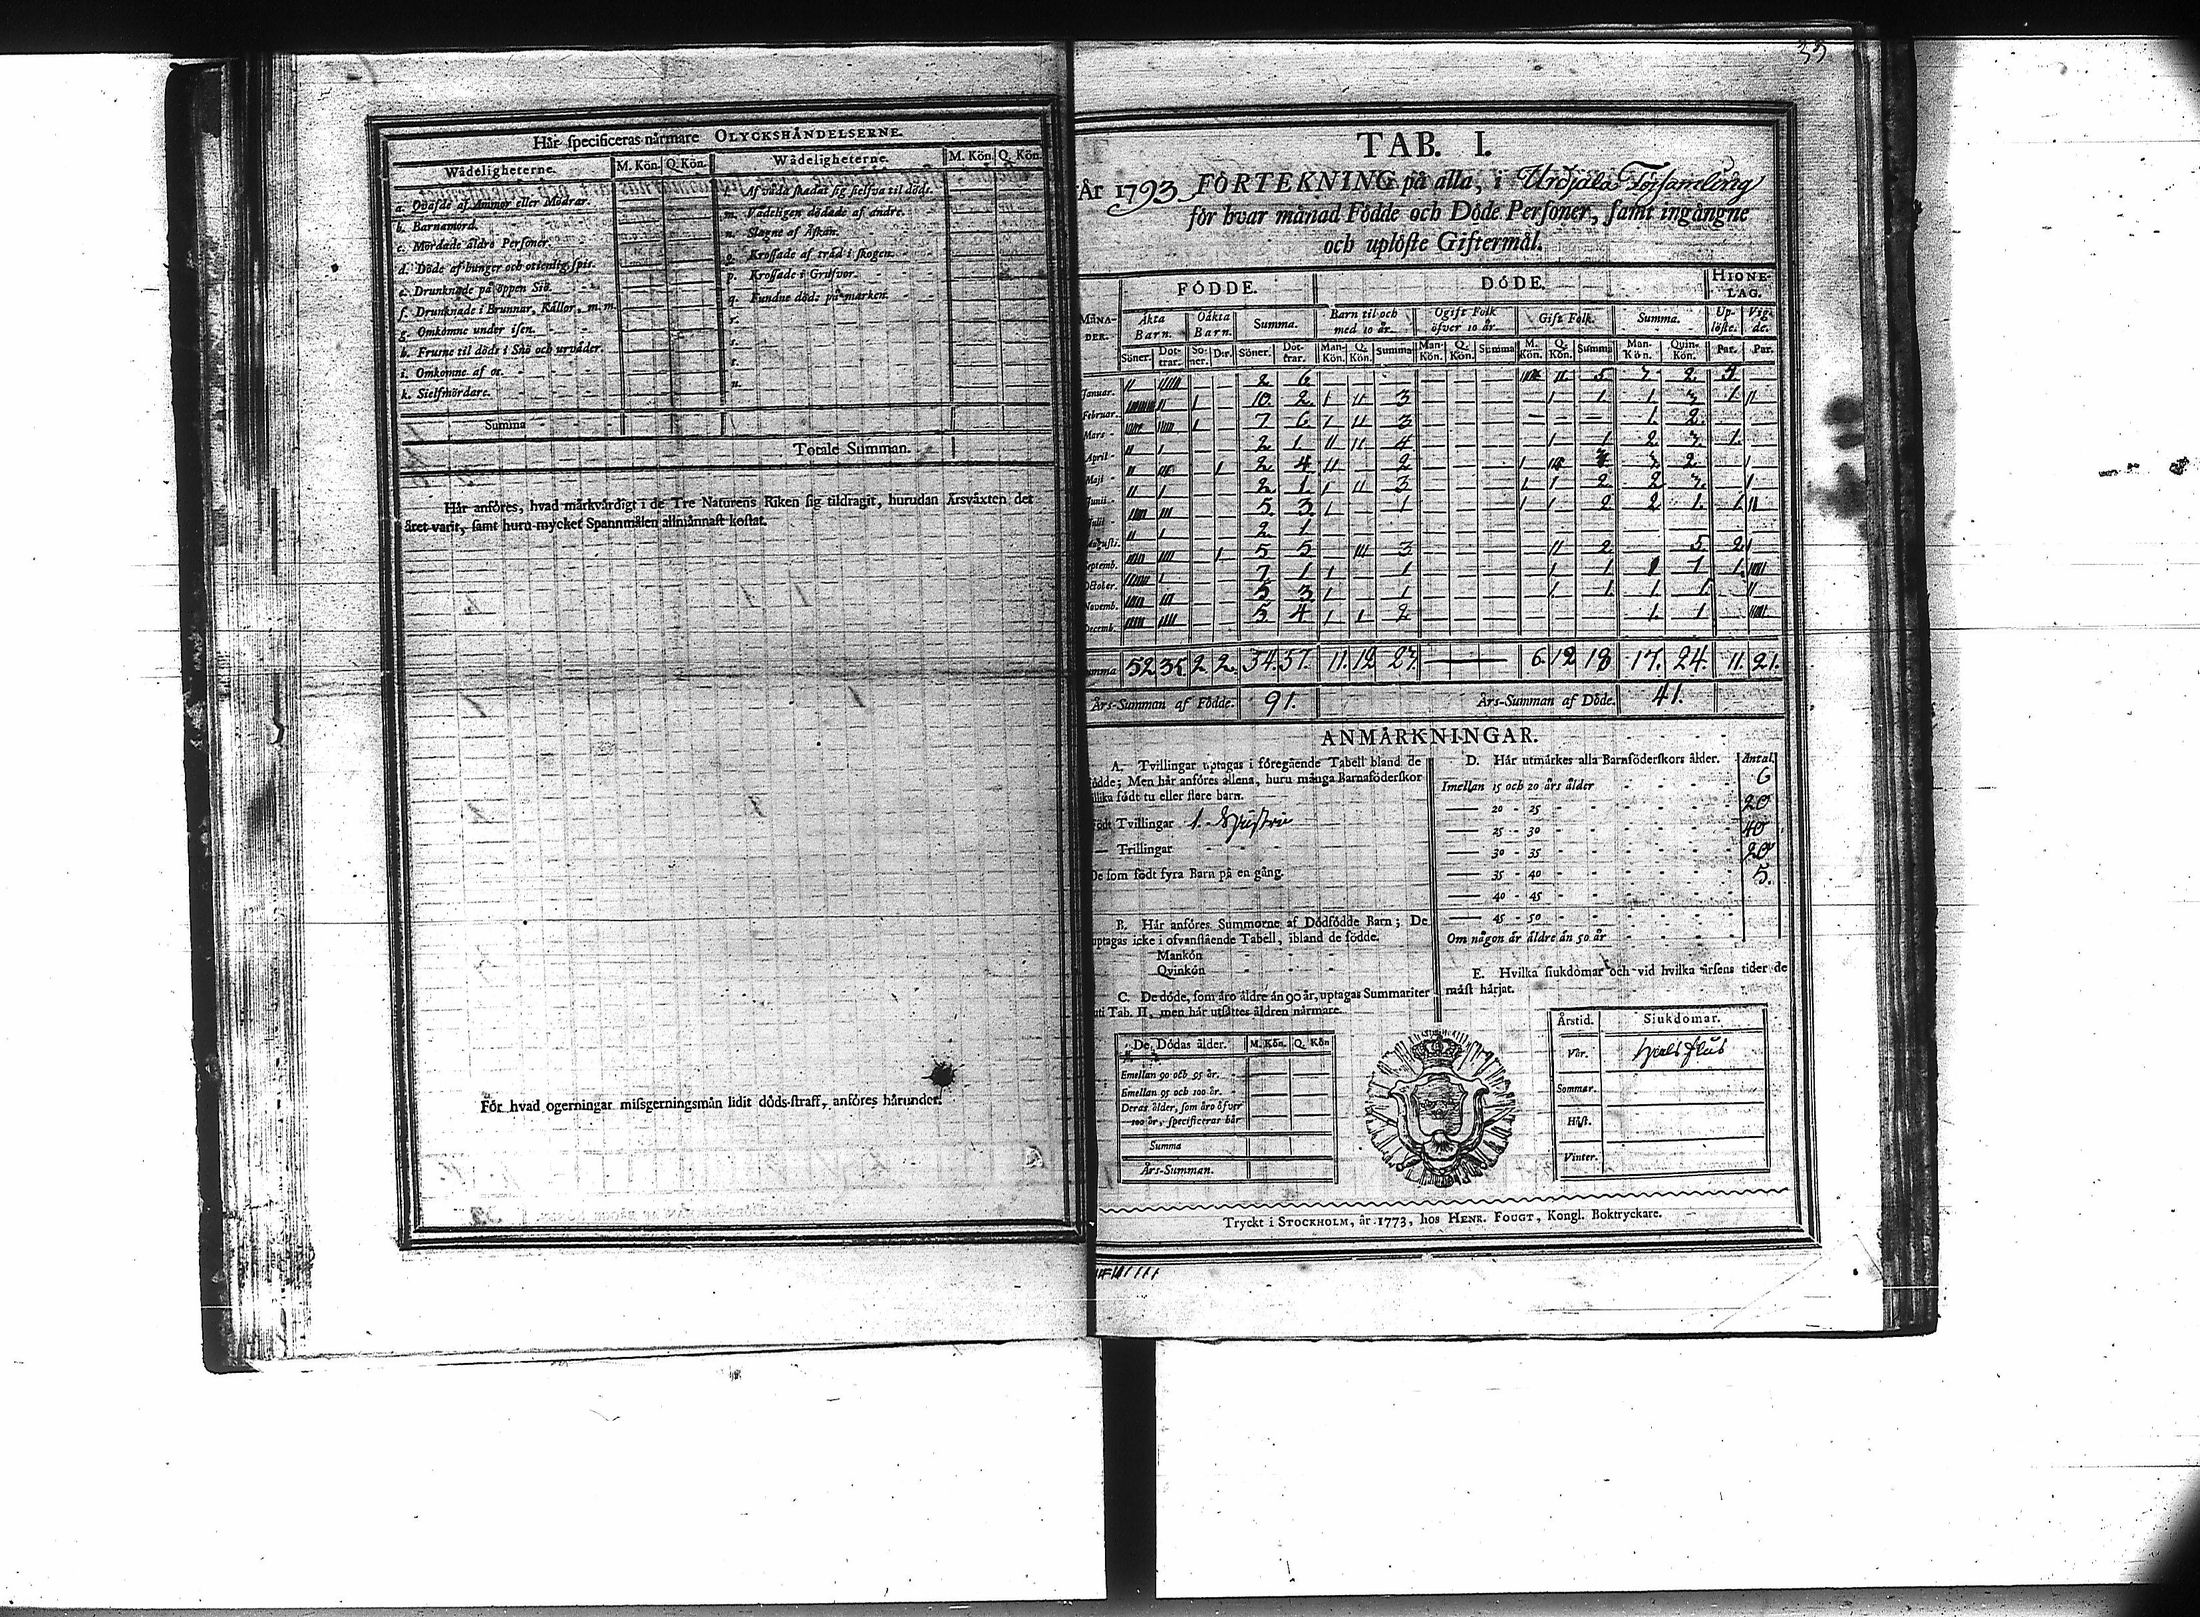 Här specificeras närmare OLYCKSHÄNDELSERNE.
Wådeligheterne. M. Kön. Q. Kön. Wådeligheterne. M. Kön. Q. Kön.
a. Qväfde af Ammor eller Mödrar.
b. Barnamord.
c. Mördade äldre Personer.
d. Döde af hunger och otienlig spis.
e. Drunknade på öppen Siö.
f. Drunknade i Brunnar, Källor, m. m.
g. Omkomne under isen.
h. Frusne til döds i Snö och urväder.
i. Omkomne af os.
k. Sielfmördare.
l. Af våda skadat sig sielfva til döds.
m. Vådeligen dödade af andre.
n. Slagne af Åskan.
o. Krossade af träd i skogen.
p. Krossade i Grufvor.
q. Fundne döde på marken.
r.
s.
t.
u.
Summa
Totale Summan.
Här anföres, hvad märkvärdigt i de Tre Naturens Riken sig tildragit, hurudan Årsväxten det
året varit, samt huru mycket Spannmålen allmännast kostat.
För hvad ogerningar missgerningsmän lidit döds-straff, anföres härunder.
33
TAB. I.
År 1793 FÖRTEKNING på alla, i Urdjala Församling
för hvar månad Födde och Döde Personer, samt ingångne
och uplöste Giftermål.
MÅNADER. FÖDDE. DÖDE. HIONELAG.
Äkta Barn. Oäkta Barn. Summa. Barn til och med 10 år. Ogift Folk öfver 10 år. Gift Folk. Summa. Uplöste. Vigde.
Söner. Döttrar. Söner. D:r. Söner. Döttrar. Man-Kön. Q. Kön. Summa Man-Kön. Q. Kön. Summa M. Kön. Q. Kön. Summa Man-Kön. Quin-Kön. Par. Par.
Januar. 2 6
Februar. 10 2 3
Mars 7 6 3
April 2 1 4
Maji 2 4 2
Junii 2 1 3
Julii 5 3 1
Augusti. 2 1
Septemb. 5 5 3
October. 7 1 1
Novemb. 5 3 1
Decemb. 5 4 2
Summa 52 35 2 2. 54. 37. 11. 12 23. 6. 12 18 17. 24. 11. 21.
Års-Summan af Födde. 91. Års-Summan af Döde. 41.
ANMÄRKNINGAR.
A. Tvillingar uptagas i föregående Tabell bland de
födde; Men här anföres allena, huru många Barnaföderskor
tillika födt tu eller flere barn.
Födt Tvillingar 1. Hustru
— Trillingar
De som födt fyra Barn på en gång.
B. Här anföres Summorne af Dödfödde Barn; De
uptagas icke i ofvanstående Tabell, ibland de födde.
Mankön
Qvinkön
C. De döde, som äro äldre än 90 år, uptagas Summariter
uti Tab. II, men här utsättes åldren närmare.
De Dödas ålder. M. Kön. Q. Kön
Emellan 90 och 95 år.
Emellan 95 och 100 år.
Deras ålder, som äro öfver
100 år, specificeras här
Summa
Års-Summan.
D. Här utmärkes alla Barnföderskors ålder. Antal
Imellan 15 och 20 års ålder 6
— 20 - 25 20
— 25 - 30 40
— 30 - 35 20
— 35 - 40 5.
— 40 - 45
— 45 - 50
Om någon är äldre än 50 år
E. Hvilka siukdomar och vid hvilka årsens tider de
mäst härjat.
Årstid. Siukdomar.
Vår.
Sommar.
Höst.
Vinter.
Tryckt i STOCKHOLM, år 1773, hos HENR. FOUGT, Kongl. Boktryckare.